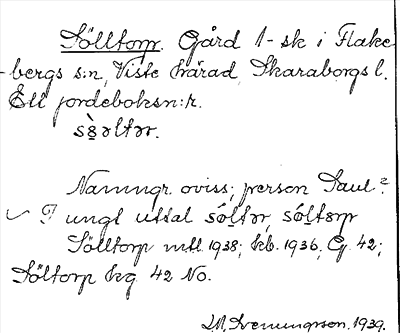 Sölltorp. Gård 1-sk i Flake
-bergs s:n, Viste härad, Skaraborgs l.
Ett jordeboksn:r.
sö̀ləltər.
Namngr. oviss; person Saul?
ungt uttal söltər, söltərp
Sölltorp mtl. 1938; kb. 1936, G. 42;
Söltorp hg. 42 No.
Sveningson. 1939.